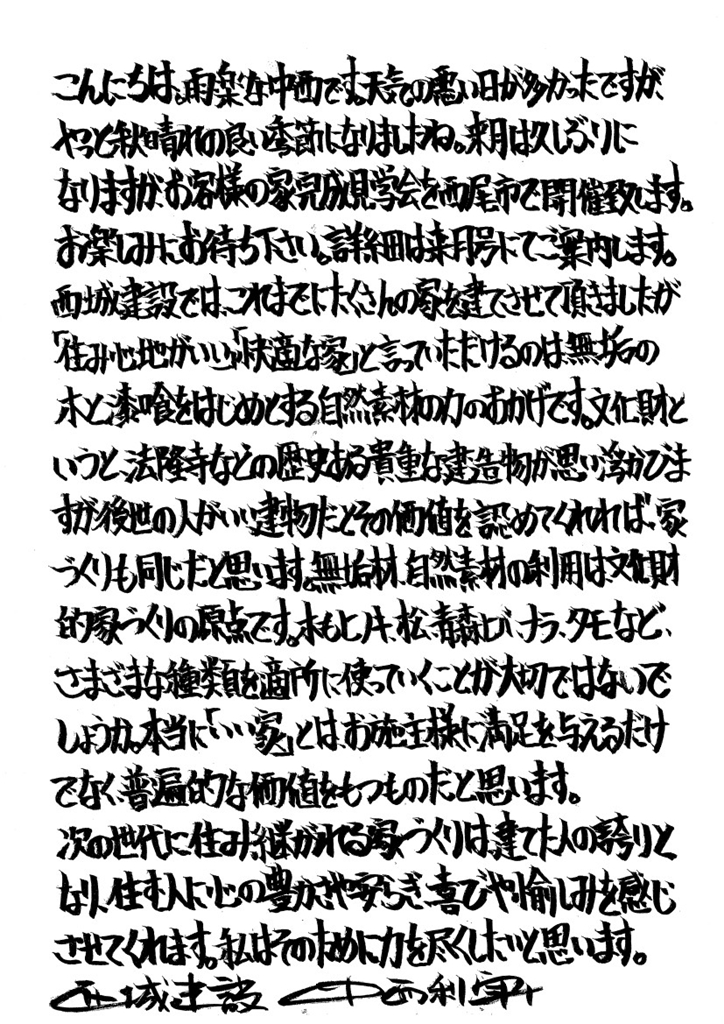 こんにちは。雨楽な中西です。天気の悪い日が多かったですが、
やっと秋晴れの良い季節になりましたね。来月は久しぶりに
なりますが、お客様の家完成見学会を西尾市で開催致します。
お楽しみにお待ち下さい。詳細は来月号にてご案内します。
西城建設では、これまでにたくさんの家を建てさせて頂きましたが
「住み心地がいい」「快適な家」と言っていただけるのは無垢の
木と漆喰をはじめとする自然素材の力のおかげです。文化財と
いうと、法隆寺などの歴史ある貴重な建造物が思い浮かびま
すが、後世の人がいい建物だとその価値を認めてくれれば、家
づくりも同じだと思います。無垢材、自然素材の利用は文化財
的家づくりの原点です。木もヒノキ、松、青森ヒバ、ナラ、タモなど、
さまざまな種類を適所に使っていくことが大切ではないで
しょうか。本当に「いい家」とは、お施主様に満足を与えるだけ
でなく、普遍的な価値をもつものだと思います。
次の世代に住み継がれる家づくりは、建てた人の誇りと
なり、住む人に心の豊かさや安らぎ、喜びや愉しみを感じ
させてくれます。私はそのために力を尽くしたいと思います。
西城建設 中西利